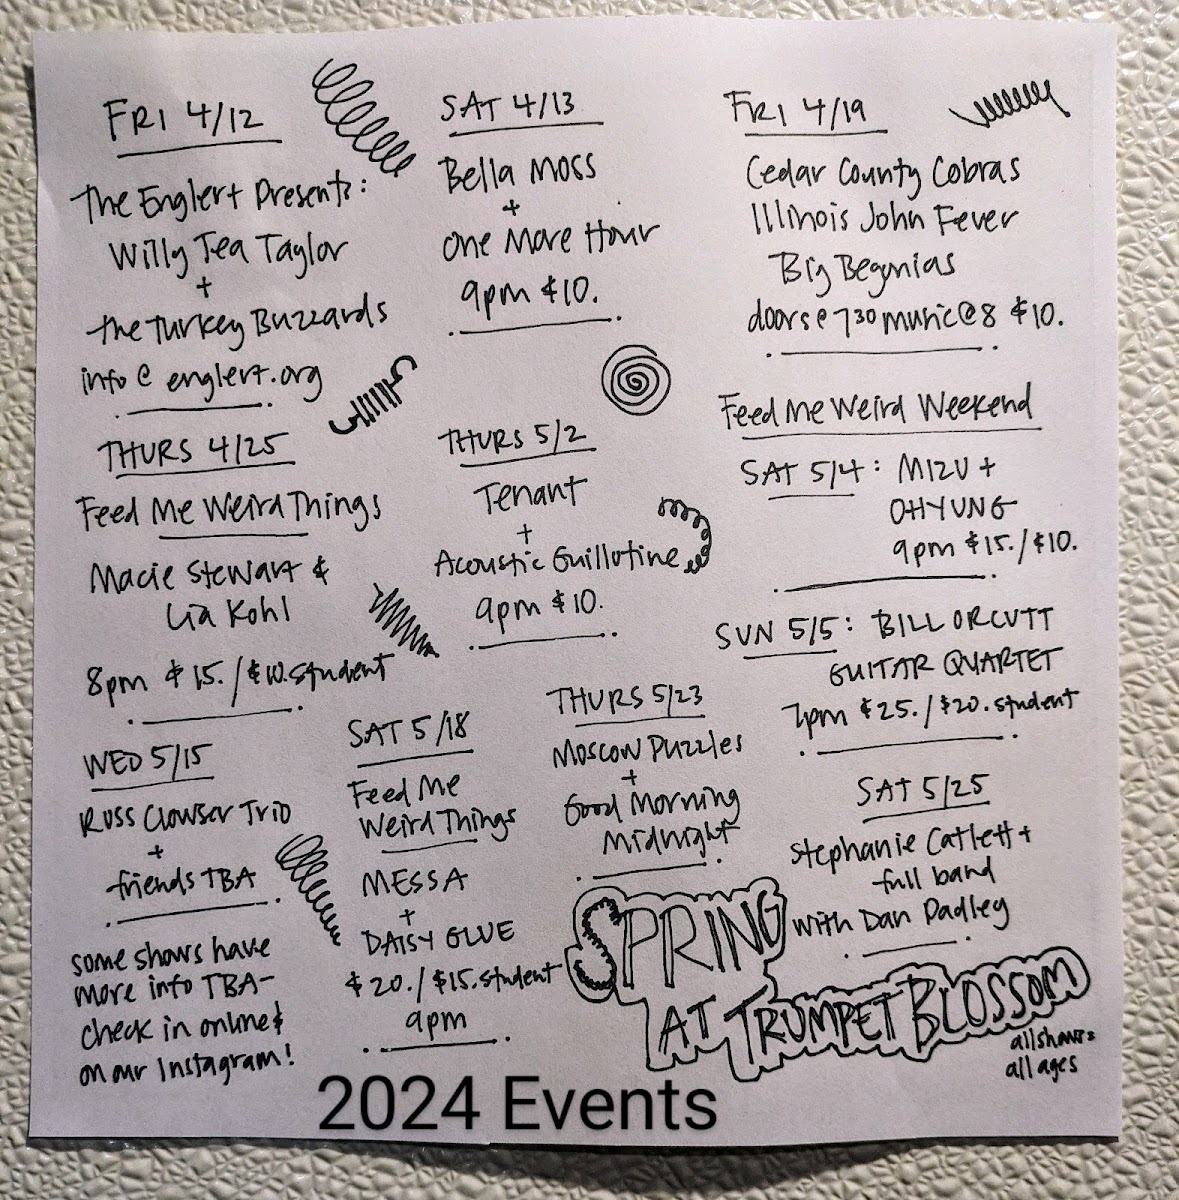 FRI 4/12
The Englert Presents:
Willy Tea Taylor
+
the Turkey Buzzards
info @ englert.org
SAT 4/13
Bella Moss
+
One More Hour
9pm $10.
FRI 4/19
Cedar County Cobras
Illinois John Fever
Big Begonias
doors@730 music@8 $10.
THURS 4/25
Feed Me Weird Things
Macie Stewart &
Lia Kohl
8pm $15./$10.student
THURS 5/2
Tenant
+
Acoustic Guillotine
9pm $10.
Feed Me Weird Weekend
SAT 5/4: MIZU +
OHYUNG
9pm $15./$10.
SUN 5/5: BILL ORCUTT
GUITAR QUARTET
7pm $25./$20.student
WED 5/15
Russ Clowser Trio
+
friends TBA
SAT 5/18
Feed Me
Weird Things
MESSA
+
DAISY GLUE
$20./$15.student
9pm
THURS 5/23
Moscow Puzzles
+
Good Morning
Midnight
SAT 5/25
Stephanie Catlett +
full band
with Dan Padley
some shows have
more info TBA-
check in online &
on our Instagram!
SPRING
AT TRUMPET BLOSSOM
all shows
all ages
2024 Events